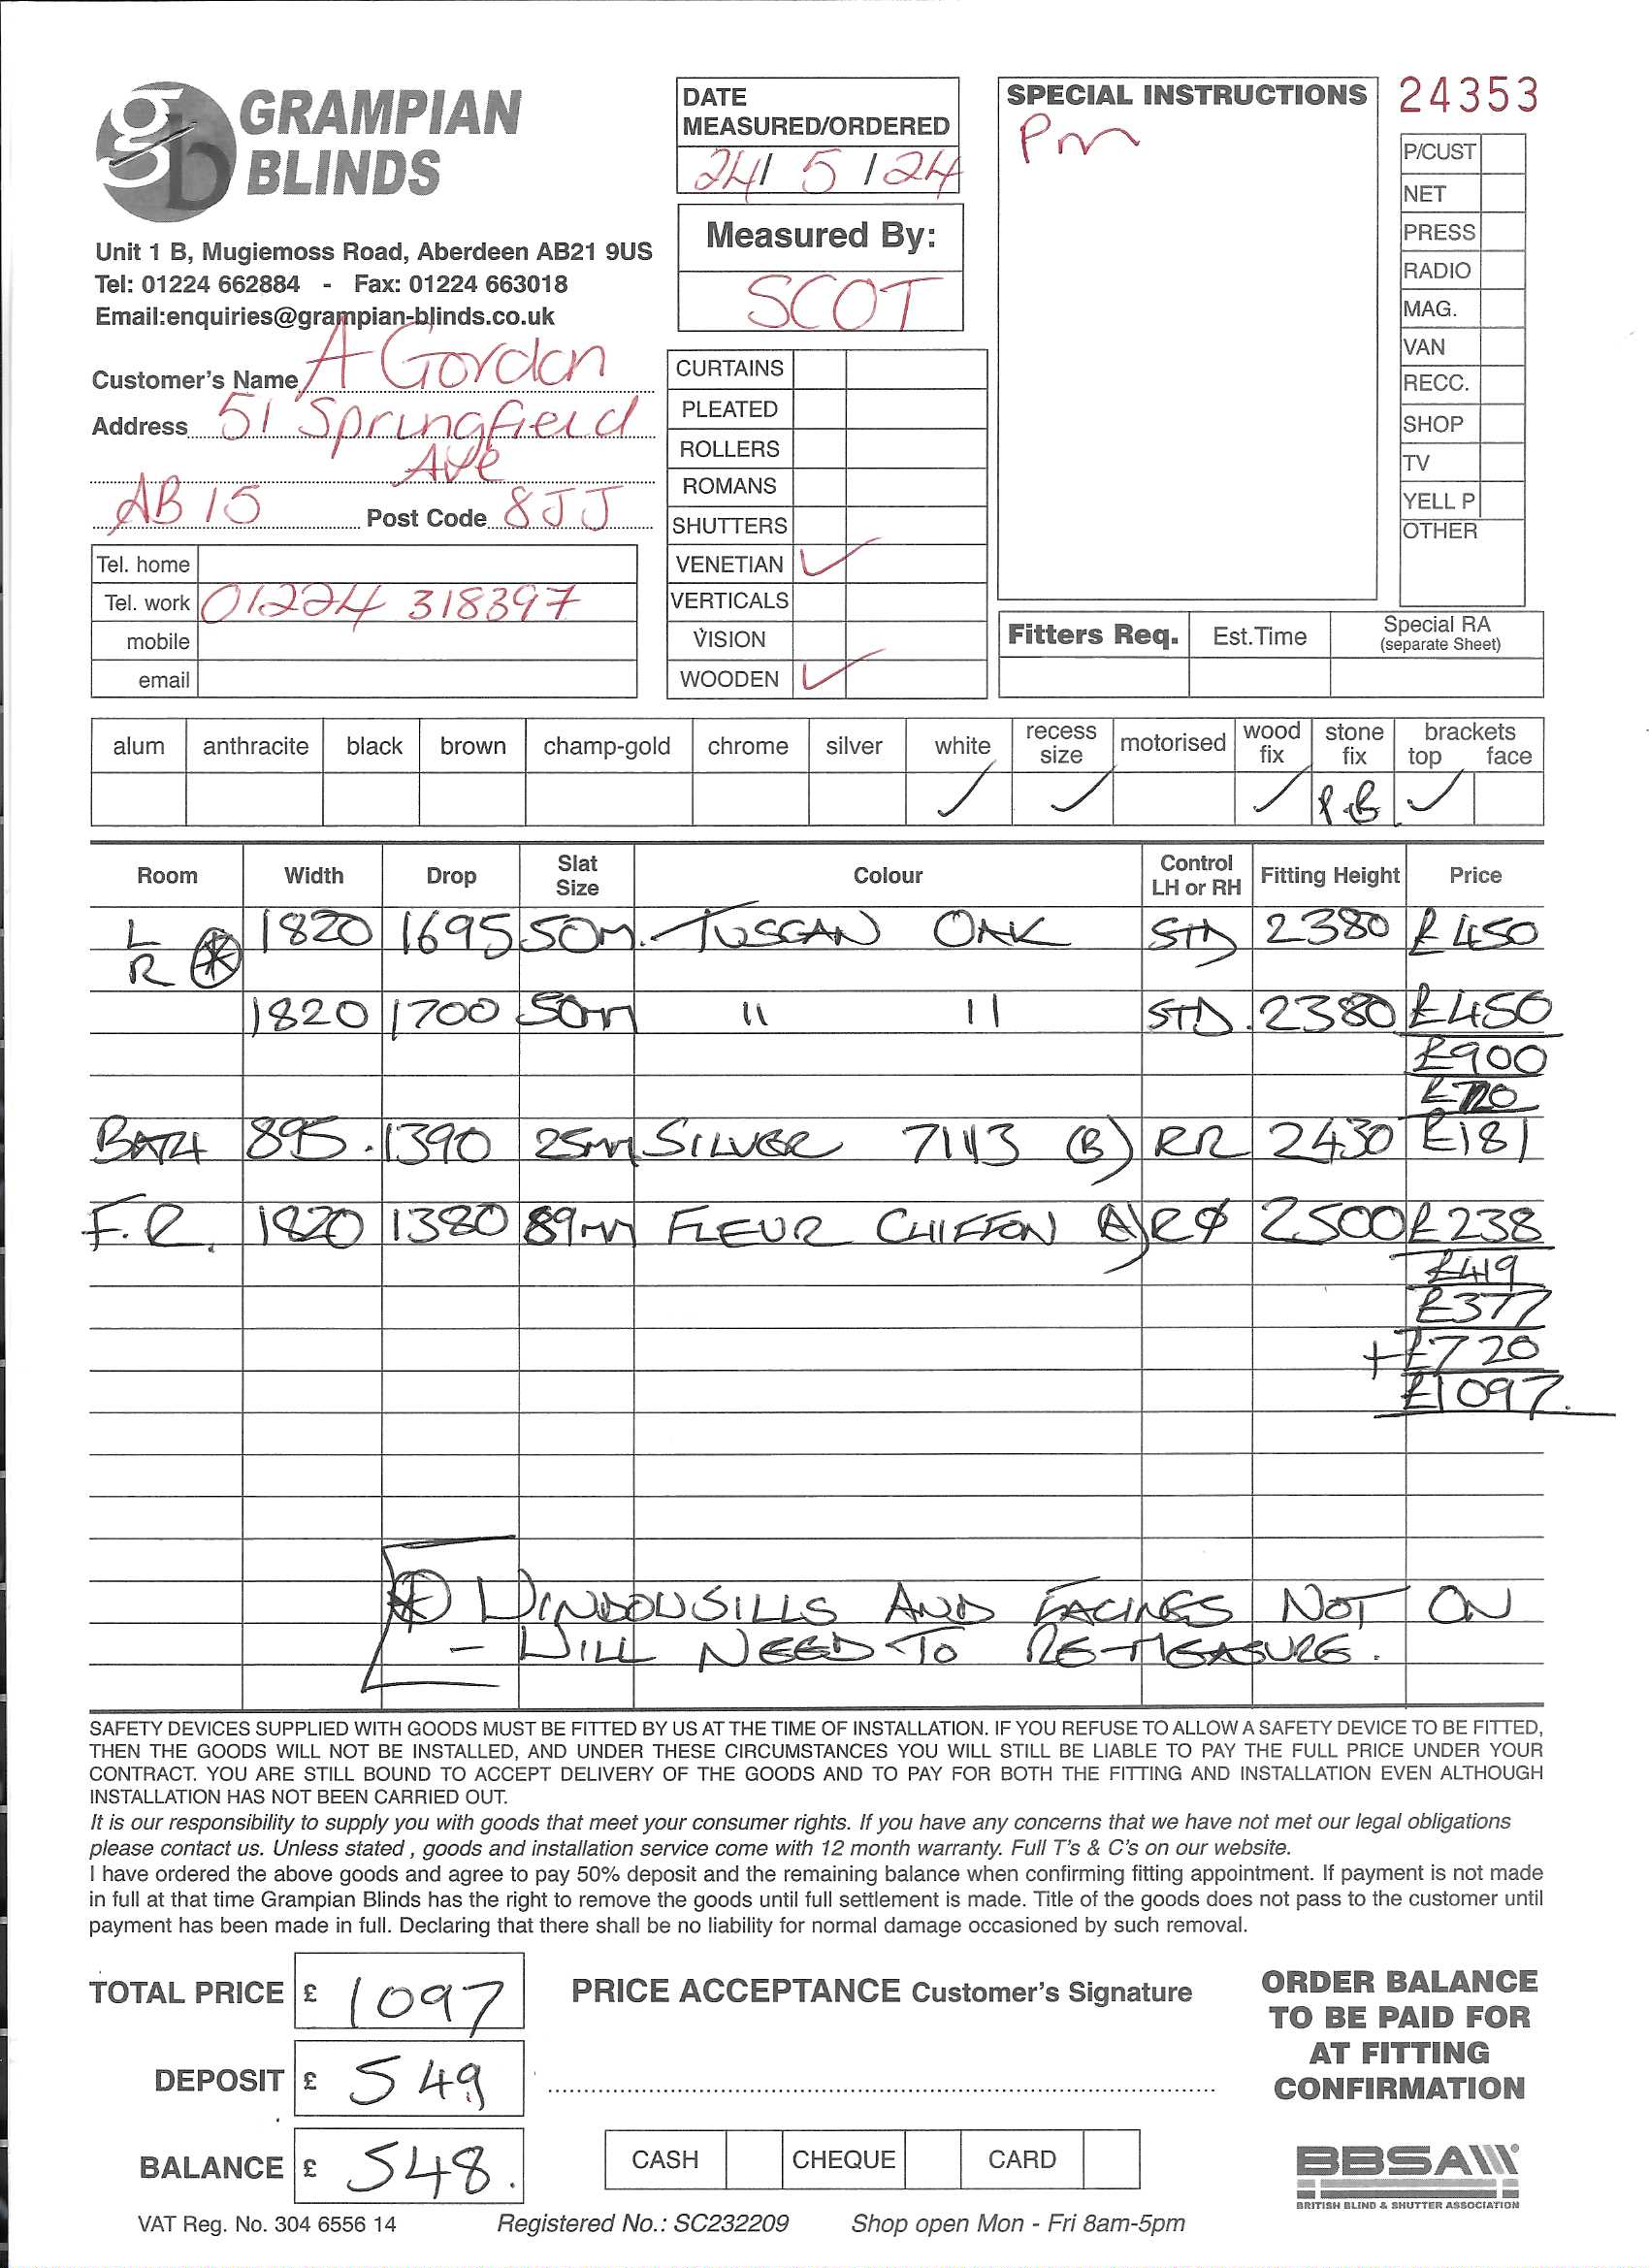 GRAMPIAN
BLINDS
Unit 1 B, Mugiemoss Road, Aberdeen AB21 9US
Tel: 01224 662884 - Fax: 01224 663018
Email:enquiries@grampian-blinds.co.uk
Customer's Name A Gordon
Address 51 Springfield
Ave
AB 15 Post Code 8JJ
Tel. home
Tel. work 01224 318397
mobile
email
DATE
MEASURED/ORDERED
24/ 5 / 24
Measured By:
SCOT
CURTAINS
PLEATED
ROLLERS
ROMANS
SHUTTERS
VENETIAN ✓
VERTICALS
VISION
WOODEN ✓
SPECIAL INSTRUCTIONS
Pm
24353
P/CUST
NET
PRESS
RADIO
MAG.
VAN
RECC.
SHOP
TV
YELL P
OTHER
Fitters Req. Est.Time Special RA
(separate Sheet)
alum anthracite black brown champ-gold chrome silver white recess size motorised wood fix stone fix brackets top face
✓ ✓ ✓ P.B. ✓
Room Width Drop Slat Size Colour Control LH or RH Fitting Height Price
L R * 1820 1695 50m. TUSCAN OAK STD 2380 £450
1820 1700 50m " " STD. 2380 £450
£900
£720
BATH 895. 1390 25mm SILVER 7113 (B) RR 2430 £181
F.R. 1820 1380 89mm FLEUR CHIFFON (A) 2500 £238
£419
£377
+£720
£1097.
* WINDOWSILLS AND FACINGS NOT ON
- WILL NEED TO RE-MEASURE.
SAFETY DEVICES SUPPLIED WITH GOODS MUST BE FITTED BY US AT THE TIME OF INSTALLATION. IF YOU REFUSE TO ALLOW A SAFETY DEVICE TO BE FITTED,
THEN THE GOODS WILL NOT BE INSTALLED, AND UNDER THESE CIRCUMSTANCES YOU WILL STILL BE LIABLE TO PAY THE FULL PRICE UNDER YOUR
CONTRACT. YOU ARE STILL BOUND TO ACCEPT DELIVERY OF THE GOODS AND TO PAY FOR BOTH THE FITTING AND INSTALLATION EVEN ALTHOUGH
INSTALLATION HAS NOT BEEN CARRIED OUT.
It is our responsibility to supply you with goods that meet your consumer rights. If you have any concerns that we have not met our legal obligations
please contact us. Unless stated , goods and installation service come with 12 month warranty. Full T's & C's on our website.
I have ordered the above goods and agree to pay 50% deposit and the remaining balance when confirming fitting appointment. If payment is not made
in full at that time Grampian Blinds has the right to remove the goods until full settlement is made. Title of the goods does not pass to the customer until
payment has been made in full. Declaring that there shall be no liability for normal damage occasioned by such removal.
TOTAL PRICE £ 1097
DEPOSIT £ 549
BALANCE £ 548.
PRICE ACCEPTANCE Customer's Signature
CASH CHEQUE CARD
ORDER BALANCE
TO BE PAID FOR
AT FITTING
CONFIRMATION
BBSA
BRITISH BLIND & SHUTTER ASSOCIATION
VAT Reg. No. 304 6556 14 Registered No.: SC232209 Shop open Mon - Fri 8am-5pm